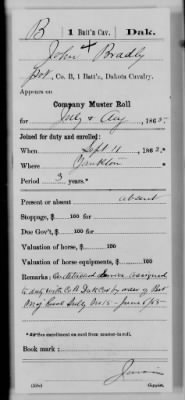 B 1 Batt'n Cav. Dak.
John Bradly
Pvt, Co. B, 1 Batt'n, Dakota Cavalry.
Appears on
Company Muster Roll
for July & Aug, 1865.
Joined for duty and enrolled:
When Sept 11, 1862.*
Where Yankton
Period 3 years.*
Present or absent absent
Stoppage, $ 100 for
Due Gov't, $ 100 for
Valuation of horse, $ 100
Valuation of horse equipments, $ 100
Remarks: assigned
to duty with Co B Dak Cav by order of
June 6/65
*See enrollment on card from muster-in roll.
Book mark:
(358c) Copyist.